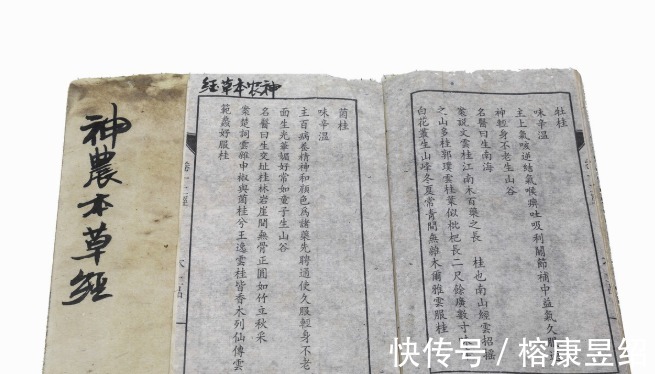 神農本草經
神农本草经
牡桂
味辛溫
主上氣咳逆結氣喉痹吐吸利關節補中益氣久服通
神輕身不老生山谷
名醫曰生南海
案說文雲桂江南木百藥之長 桂也南山經雲招搖
之山多桂郭璞雲桂葉似枇杷長二尺餘廣數寸
白花叢生山峰冬夏常青間無雜木爾雅雲服桂
菌桂
味辛溫
主百病養精神和顏色為諸藥先聘通使久服輕身不老
面生光華媚好常如童子生山谷
名醫曰生交址桂林岩崖間無骨正圓如竹立秋采
案楚詞雲雜申椒與菌桂兮王逸雲桂皆香木列仙傳雲
範蠡好服桂
快传号 / 榕康昱绍